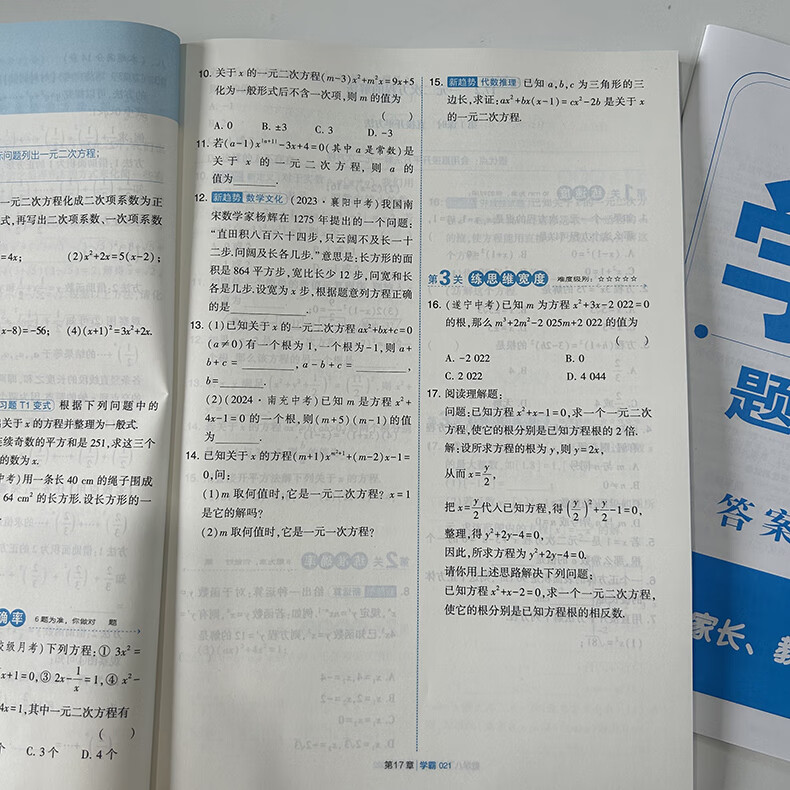 示问题列出一元二次方程;
一元二次方程化成二次项系数为正
式,再写出二次项系数、一次项系数
=4x;
(2)x²+2x=5(x-2);
x-8)=-56;
(4)(x+1)²=3x²+2x.
习题T1变式 根据下列问题中的
出关于x的方程并整理为一般式.
连续奇数的平方和是251,求这三个
的数为x.
中考)用一条长40 cm的绳子围成
64 cm²的长方形.设长方形的一
确率 6题为准,你做对 题
校级月考)下列方程:① 3x²=
x+1=0,③ 2x-1/x=1,④ x²-
4x=1,其中一元二次方程有
( )
个 C. 3个 D. 4个
10. 关于x的一元二次方程(m-3)x²+m²x=9x+5
化为一般形式后不含一次项,则m的值为
( )
A. 0 B. ±3 C. 3 D. -3
11. 若(a-1)x^(|a|+1)-3x+4=0(其中a是常数)是
关于x的一元二次方程,则a的
值为______.
12. 新趋势 数学文化 (2023·襄阳中考)我国南
宋数学家杨辉在1275年提出的一个问题:
“直田积八百六十四步,只云阔不及长一十
二步.问阔及长各几步.”意思是:长方形的面
积是864平方步,宽比长少12步,问宽和长
各是几步.设宽为x步,根据题意列方程正确
的是______.
13. (1)已知关于x的一元二次方程ax²+bx+c=0
(a≠0)有一个根为1,一个根为-1,则a+
b+c=______,a-b+c=______,
b=______.
(2)(2024·南充中考)已知m是方程x²+
4x-1=0的一个根,则(m+5)(m-1)的值
为______.
14. 已知关于x的方程(m+1)x^(m²+1)+(m-2)x-1=
0,问:
(1)m取何值时,它是一元二次方程? x=1
是它的解吗?
(2)m取何值时,它是一元一次方程?
15. 新趋势 代数推理 已知a,b,c为三角形的三
边长,求证:ax²+bx(x-1)=cx²-2b是关于x
的一元二次方程.
第3关 练思维宽度 难度级别:☆☆☆☆☆
16. (遂宁中考)已知m为方程x²+3x-2 022=0
的根,那么m³+2m²-2 025m+2 022的值为
( )
A. -2 022 B. 0
C. 2 022 D. 4 044
17. 阅读理解题:
问题:已知方程x²+x-1=0,求一个一元二次
方程,使它的根分别是已知方程根的2倍.
解:设所求方程的根为y,则y=2x,
从而x=y/2,
把x=y/2代入已知方程,得(y/2)²+y/2-1=0,
整理,得y²+2y-4=0,
因此,所求方程为y²+2y-4=0.
请你用上述思路解决下列问题:
已知方程x²+x-2=0,求一个一元二次方程,
使它的根分别是已知方程根的相反数.
第17章 学霸 021
题
答案
家长、教